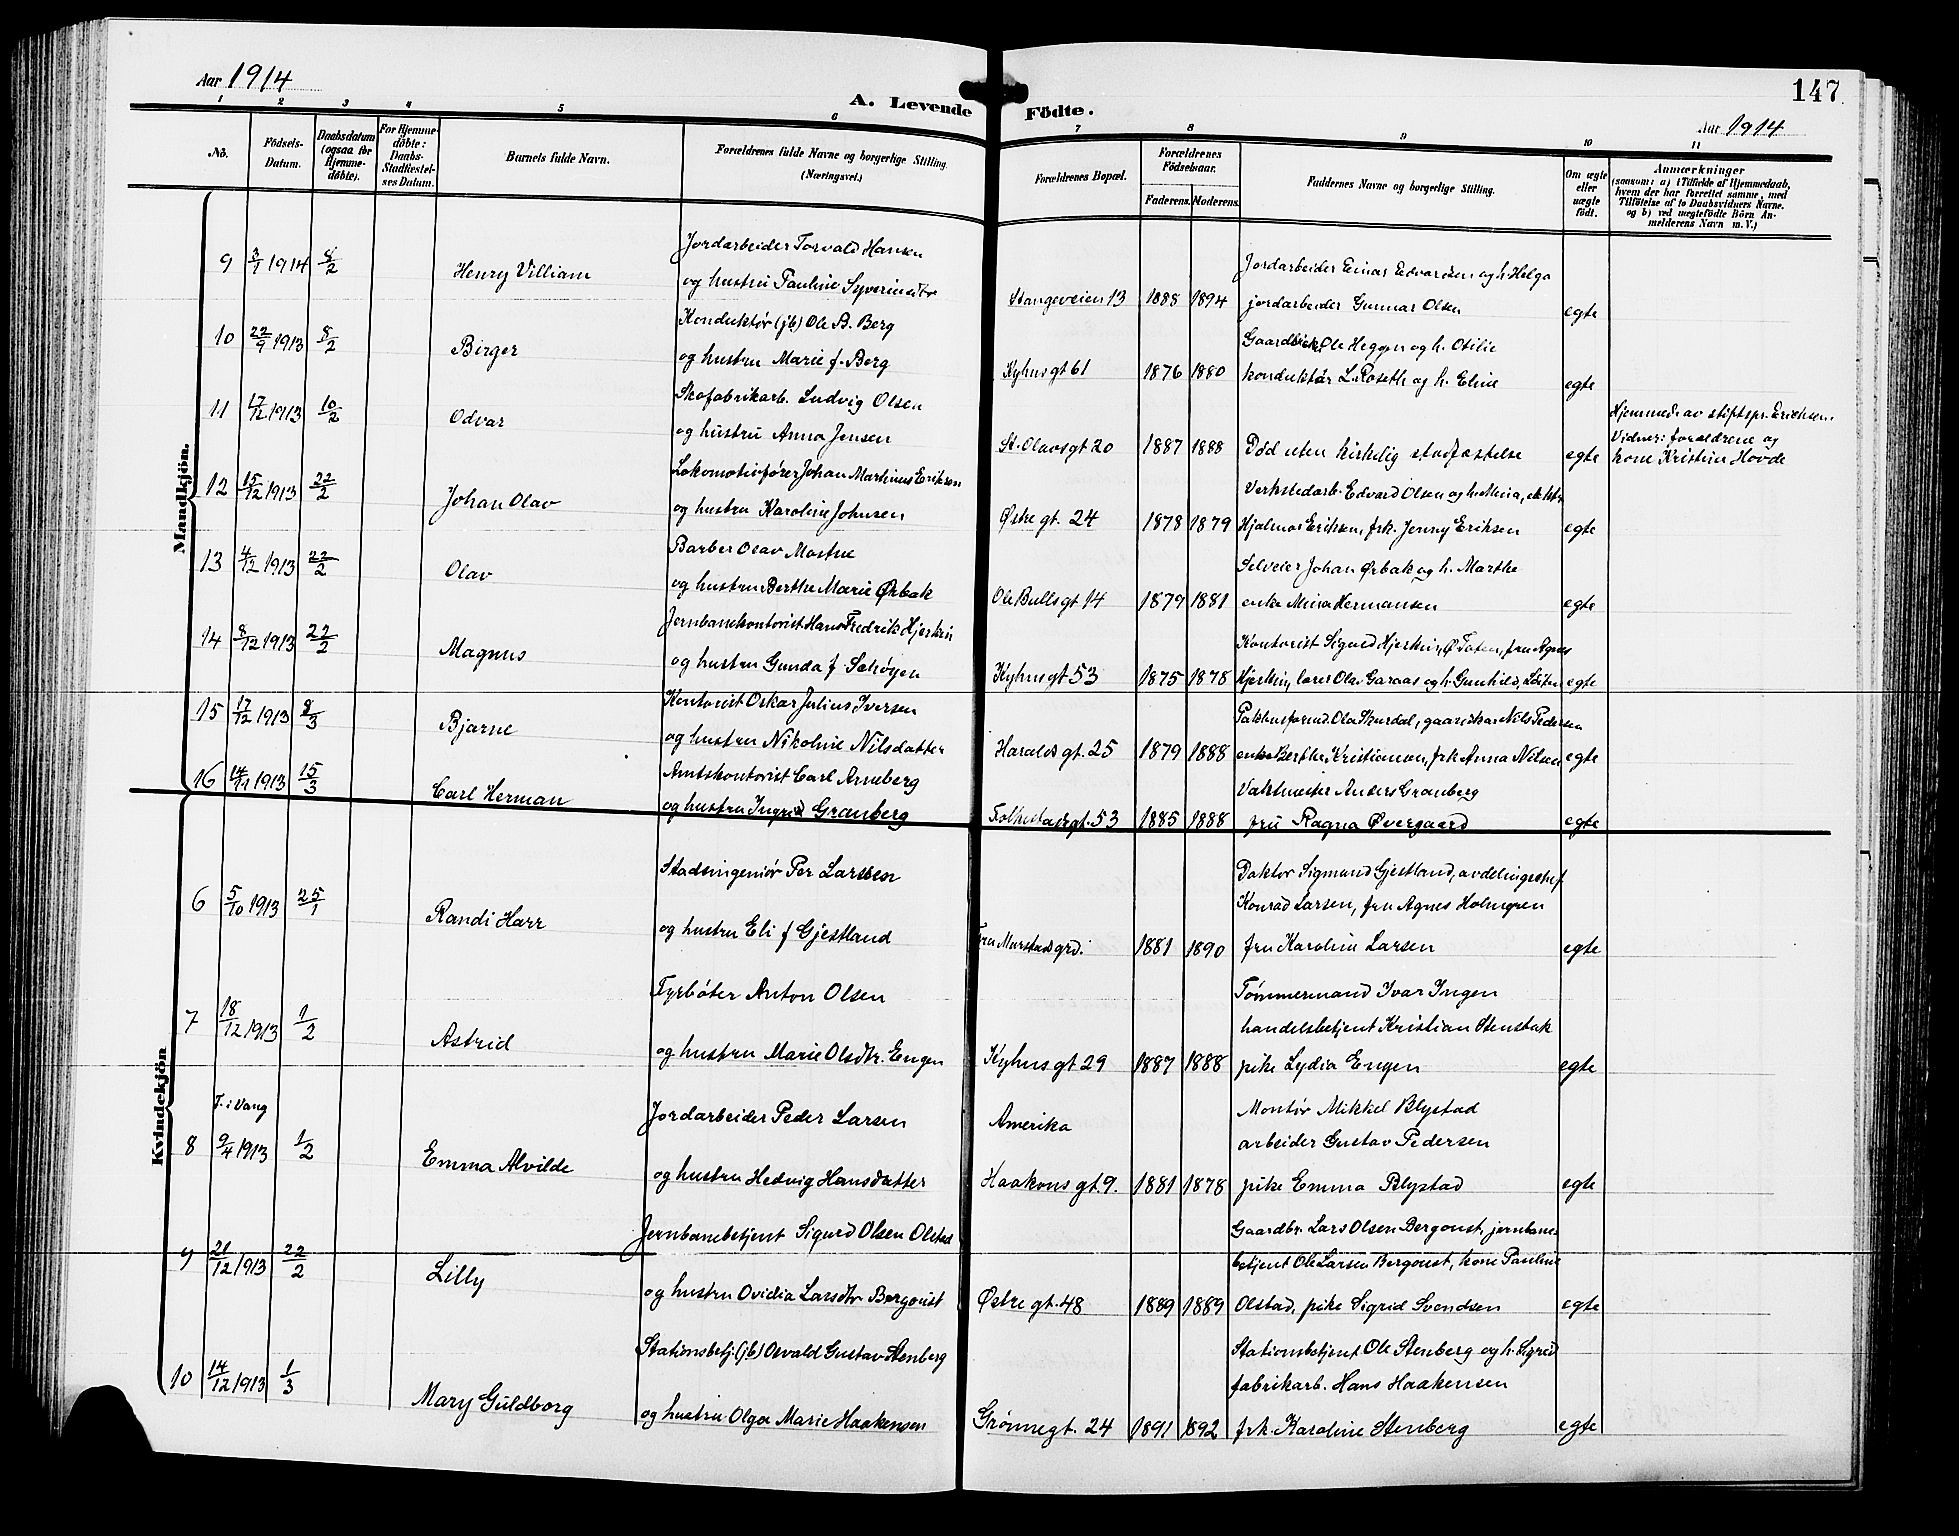 Aar 1914
A. Levende Födte.
147
Aar 1914
1 2 3 4 5 6 7 8 9 10 11
Nö.
Födsels-Datum.
Daabsdatum (ogsaa for Hjemme-döbte).
For Hjemme-döbte: Daabs-Stadfæstel-ses Datum.
Barnets fulde Navn.
Forældrenes fulde Navne og borgerlige Stilling.
(Næringsvei.)
Forældrenes Bopæl.
Forældrenes Födselsaar.
Faderens. Moderens.
Faddernes Navne og borgerlige Stilling.
Om ægte eller uægte födt.
Anmærkninger
(saasom: a) i Tilfælde af Hjemmedaab,
hvem der har forrettet samme, med
Tilföielse af to Daabsvidners Navne.
og b) ved uegtefödte Börn An-
melderens Navn m. V.)
Mandkjön.
Jordarbeider Torvald Hansen
9 3/1 1914 8/2 Henry Villiam og hustru Pauline Syverinsdtr
Jordarbeider Einar Edvardsen og h. Helga
Stangeveien 13 1888 1894 jordarbeider Gunnar Olsen egte
Konduktør (jb) Ole B. Berg
10 22/9 1913 8/2 Birger og hustru Marie f. Berg
Ole Heggen og h. Otilie
Kyhns gt 61 1876 1880 konduktør L. Roseth og h. Eline egte
Skofabrikarb. Ludvig Olsen
11 17/12 1913 10/2 Odvar og hustru Anna Jensen
St. Olavs gt 20 1887 1888 Død uten kirkelig stadfæstelse egte
Hjemmed. av stiftspr. Erichsen.
Vidner: forældrene og
kone Kristin Hovde
Lokomotivfører Johan Martinus Eriksen
12 15/12 1913 22/2 Johan Olav og hustru Karoline Johnsen
Verkstedarb. Edvard Olsen og h. Mina,
Østre gt. 24 1878 1879 Hjalmar Eriksen, frk. Jenny Eriksen egte
Barber Olav Mostue
13 4/12 1913 22/2 Olav og hustru Berthe Marie Ørbak
Selveier Johan Ørbak og h. Marthe
Ole Bulls gt 14 1879 1881 enke Mina Hermansen egte
Jernbanekontorist Hans Fredrik Hjerkin
14 8/12 1913 22/2 Magnus og hustru Gunda f
Kontorist Sigurd Hjerkin, Ø Toten, fru Agnes
Kyhns gt 53 1875 1878 Hjerkin, lærer Olav Garaas og h. Gunhild, Løiten egte
Kontorist Oskar Julius Iversen
15 17/12 1913 8/3 Bjarne og hustru Nikoline Nilsdatter
Pakhusformd. Ola Skurdal, gaardskar Nils Pedersen
Haralds gt. 25 1879 1888 enke Berthe Kristiansen, frk Anna Nilsen egte
Amtskontorist Carl Arneberg
16 14/11 1913 15/3 Carl Herman og hustru Ingrid Granberg
Vaktmester Anders Granberg
Folkestads gt. 53 1885 1888 fru Ragna Øvergaard egte
Kvindekjön
Stadsingeniør Per Larssen
6 5/10 1913 25/1 Randi Harr og hustru Eli f Gjestland
Doktor Sigmund Gjestland, avdelingschef
Konrad Larsen, fru Agnes Holmgren
Fru Murstads grd. 1881 1890 fru Karoline Larsen egte
Fyrbøter Anton Olsen
7 18/12 1913 1/2 Astrid og hustru Marie Olsdtr. Engen
Tømmermand Ivar Ingen
handelsbetjent Kristian Stensbak
Kyhns gt 29 1887 1888 pike Lydia Engen egte
F. i Vang
Jordarbeider Peder Larsen
8 9/4 1913 1/2 Emma Alvilde og hustru Hedvig Hansdatter
Amerika
Montør Mikkel Blystad
arbeider Gustav Pedersen
Haakons gt. 9. 1881 1878 pike Emma Blystad egte
Jernbanebetjent Sigurd Olsen Olstad
9 21/12 1913 22/2 Lilly og hustru Ovidia Larsdtr Bergquist
Gaardbr. Lars Olsen Bergqust, jernbane-
betjent Ole Larsen Bergqust, kone Pauline
Østre gt. 48 1889 1889 Olstad, pike Sigrid Svendsen egte
Stationsbetj. (jb) Osvald Gustav Stenberg
10 14/12 1913 1/3 Mary Guldborg og hustru Olga Marie Haakensen
Stationsbetjent Ole Stenberg og h. Sigrid
fabrikarb. Hans Haakensen
Grønne gt. 24 1891 1892 frk. Karoline Stenberg egte